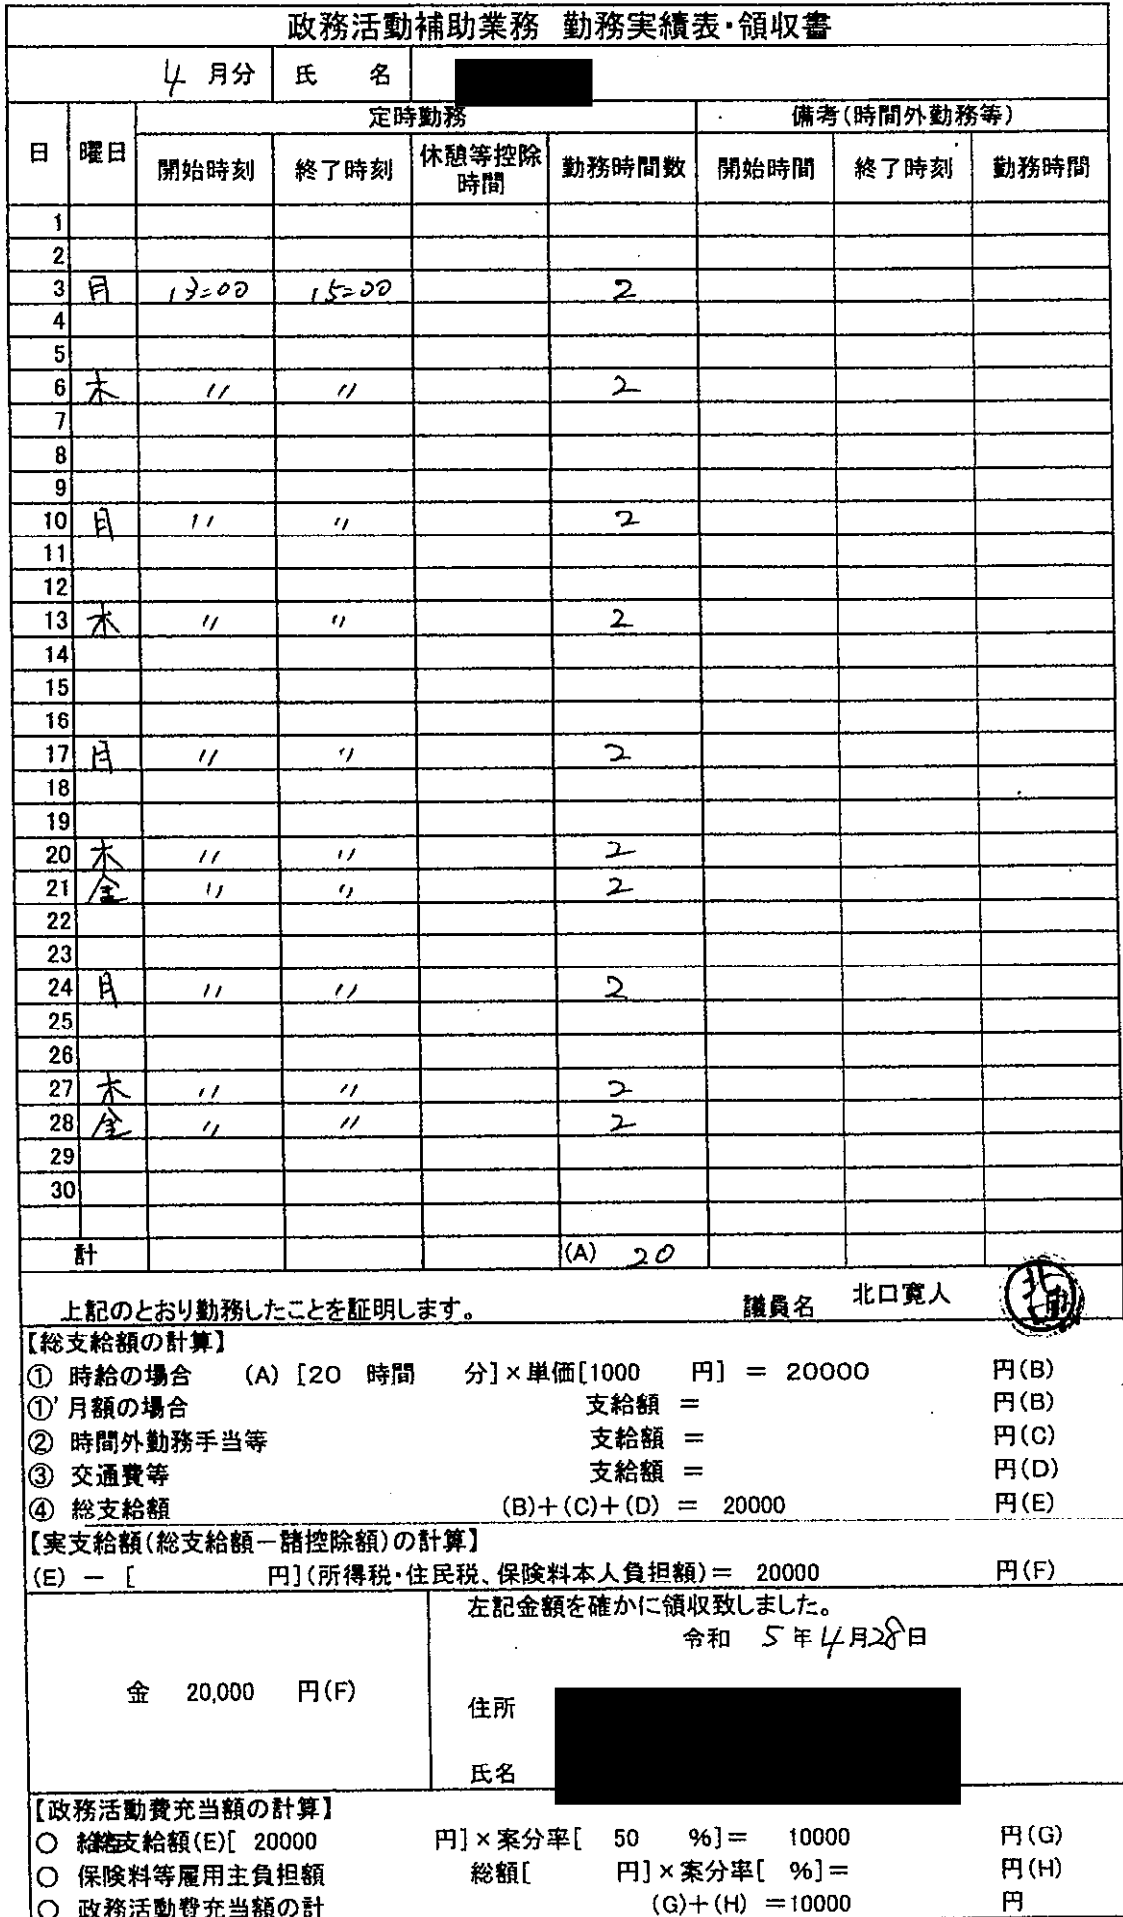 政務活動補助業務 勤務実績表・領収書
4 月分 氏 名
日 曜日 定時勤務 備考(時間外勤務等)
開始時刻 終了時刻 休憩等控除時間 勤務時間数 開始時間 終了時刻 勤務時間
1
2
3 月 13=00 15=00 2
4
5
6 木 〃 〃 2
7
8
9
10 月 〃 〃 2
11
12
13 木 〃 〃 2
14
15
16
17 月 〃 〃 2
18
19
20 木 〃 〃 2
21 金 〃 〃 2
22
23
24 月 〃 〃 2
25
26
27 木 〃 〃 2
28 金 〃 〃 2
29
30
計 (A) 20
上記のとおり勤務したことを証明します。 議員名 北口寛人
【総支給額の計算】
① 時給の場合 (A) [20 時間 分]×単価[1000 円] = 20000 円(B)
①' 月額の場合 支給額 = 円(B)
② 時間外勤務手当等 支給額 = 円(C)
③ 交通費等 支給額 = 円(D)
④ 総支給額 (B)+(C)+(D) = 20000 円(E)
【実支給額(総支給額-諸控除額)の計算】
(E) - [ 円](所得税・住民税、保険料本人負担額)= 20000 円(F)
左記金額を確かに領収致しました。
令和 5年4月28日
金 20,000 円(F)
住所
氏名
【政務活動費充当額の計算】
○ 支給額(E)[ 20000 円]×案分率[ 50 %]= 10000 円(G)
○ 保険料等雇用主負担額 総額[ 円]×案分率[ %]= 円(H)
○ 政務活動費充当額の計 (G)+(H) =10000 円